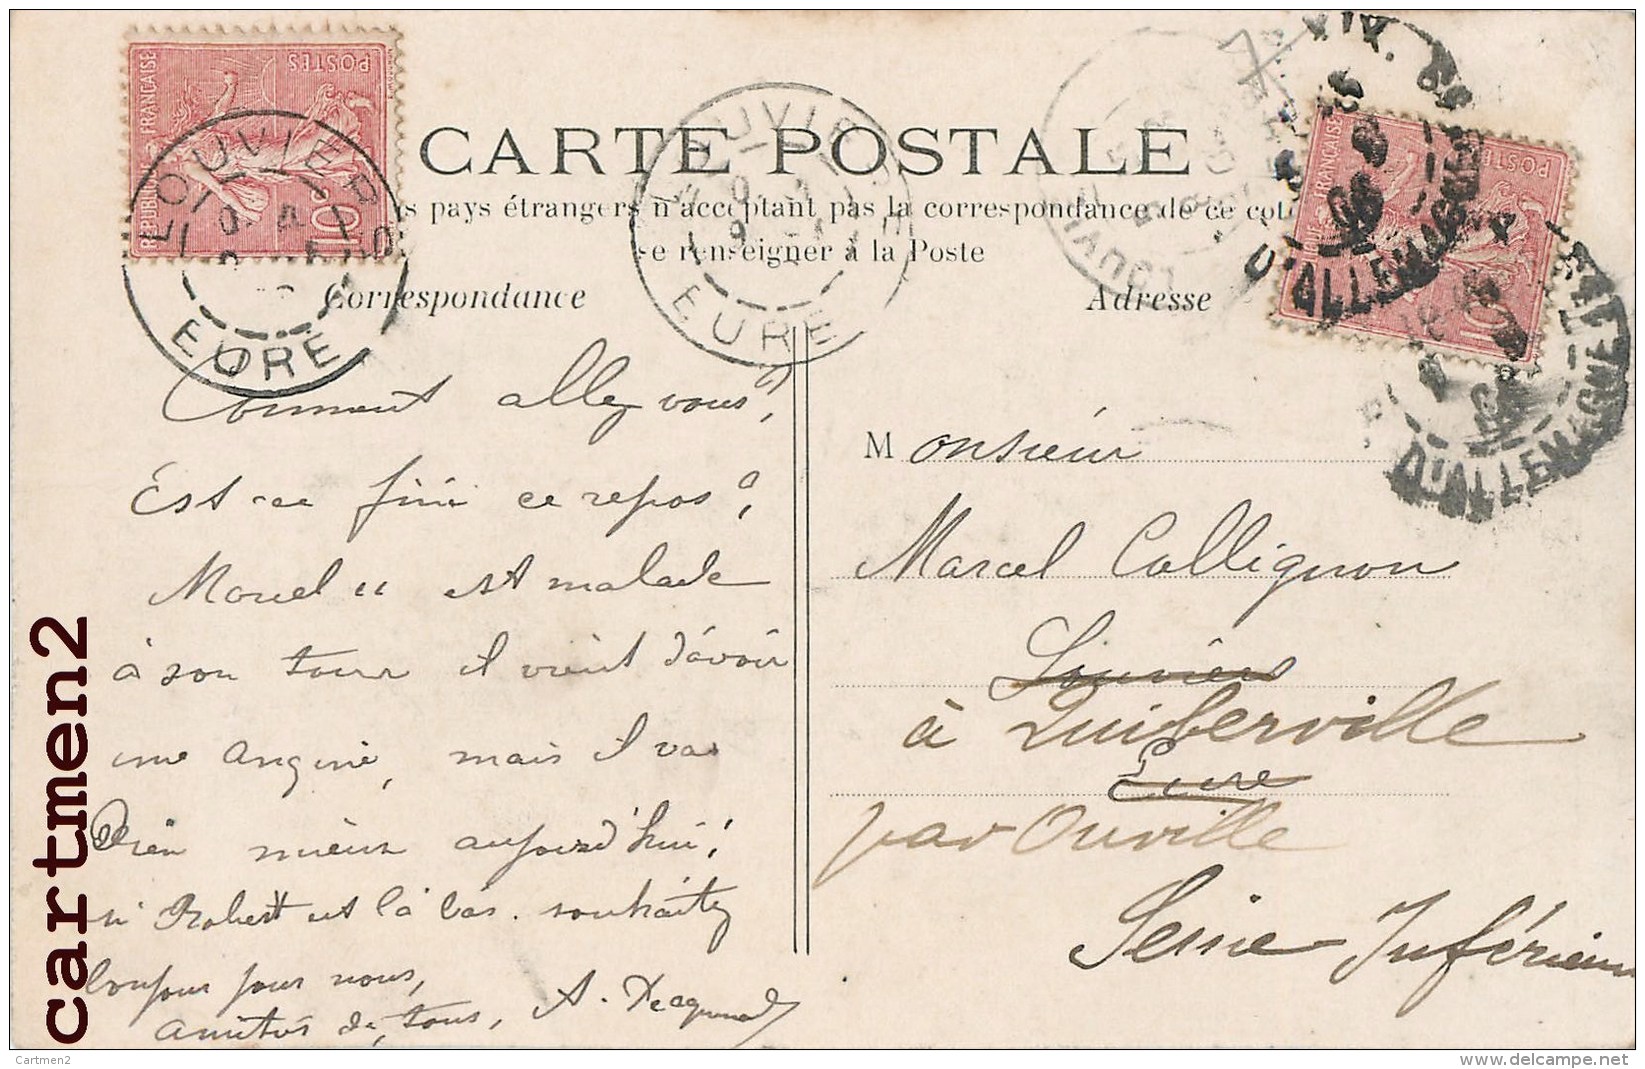 RÉPUBLIQUE FRANÇAISE
POSTES
10
LOUVIERS
EURE
LOUVIERS
EURE
LOUVIERS
RÉPUBLIQUE FRANÇAISE
POSTES
10
D'ALLEMAGNE
D'ALLEMAGNE
CARTE POSTALE
pays étrangers n'acceptant pas la correspondance de ce coté
se renseigner à la Poste
Correspondance
Adresse
Comment allez vous?
Est-ce fini ce repos?
Marcel est malade
à son tour il vient d'avoir
une angine, mais il va
bien mieux aujourd'hui;
si Robert est là bas. souhaitez
bonjour pour nous,
amitiés de tous, A.
Monsieur
Marcel Collignon
Louviers
à Quiberville
Eure
par Ouville
Seine Inférieure
cartmen2
Cartmen2
www.delcampe.net